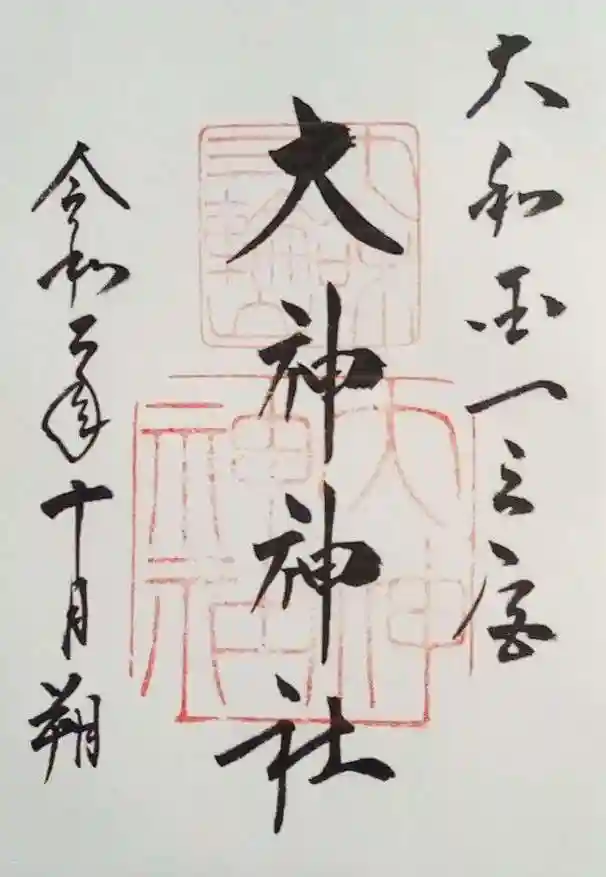 大和国一之宮
大神神社
令和二年十月朔
三輪明神
大神神社